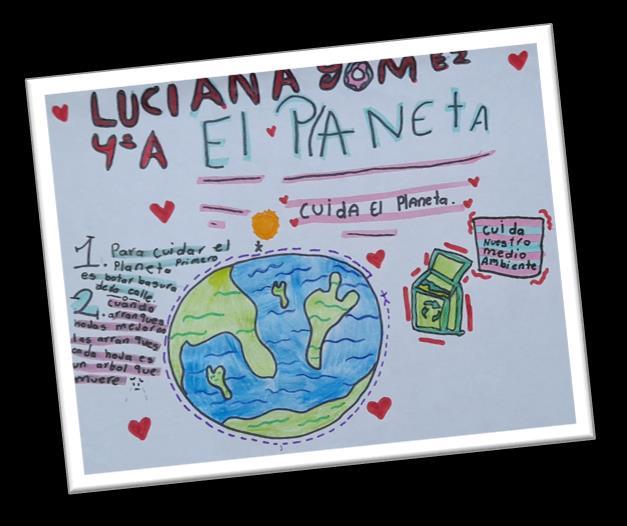 LUCIANA GOMEZ
4ºA El PlANEtA
CUIDA El Planeta.
Cuida
Nuestro
medio
Ambiente
1. Para cuidar el
Planeta Primero
es botar basura
de la calle.
2. cuando
arranques
hodas
las arranques
cada hoda es
un arbol que
muere